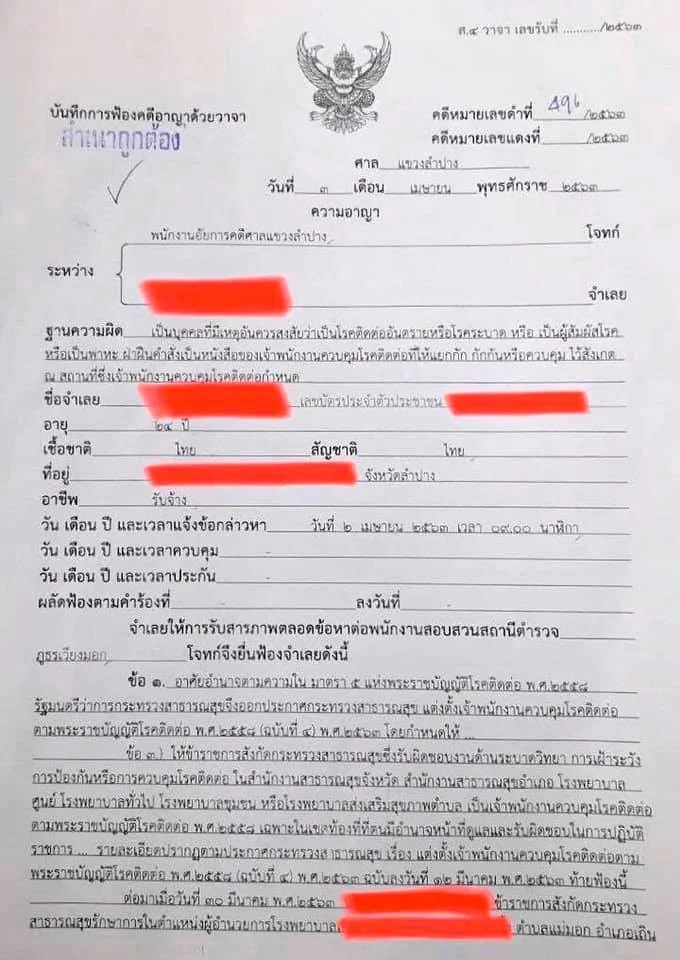 ส.๔ วาจา เลขรับที่ .........../๒๕๖๓
บันทึกการฟ้องคดีอาญาด้วยวาจา
สำเนาถูกต้อง
คดีหมายเลขดำที่ 496 /๒๕๖๓
คดีหมายเลขแดงที่ /๒๕๖๓
ศาล แขวงลำปาง
วันที่ ๓ เดือน เมษายน พุทธศักราช ๒๕๖๓
ความอาญา
พนักงานอัยการคดีศาลแขวงลำปาง โจทก์
ระหว่าง
จำเลย
ฐานความผิด เป็นบุคคลที่มีเหตุอันควรสงสัยว่าเป็นโรคติดต่ออันตรายหรือโรคระบาด หรือ เป็นผู้สัมผัสโรค
หรือเป็นพาหะ ฝ่าฝืนคำสั่งเป็นหนังสือของเจ้าพนักงานควบคุมโรคติดต่อที่ให้แยกกัก กักกันหรือควบคุม ไว้สังเกต
ณ สถานที่ซึ่งเจ้าพนักงานควบคุมโรคติดต่อกำหนด
ชื่อจำเลย เลขบัตรประจำตัวประชาชน
อายุ ๒๔ ปี
เชื้อชาติ ไทย สัญชาติ ไทย
ที่อยู่ จังหวัดลำปาง
อาชีพ รับจ้าง
วัน เดือน ปี และเวลาแจ้งข้อกล่าวหา วันที่ ๒ เมษายน ๒๕๖๓ เวลา ๐๙.๐๐ นาฬิกา
วัน เดือน ปี และเวลาควบคุม -
วัน เดือน ปี และเวลาประกัน -
ผลัดฟ้องตามคำร้องที่ - ลงวันที่ -
จำเลยให้การรับสารภาพตลอดข้อหาต่อพนักงานสอบสวนสถานีตำรวจ
ภูธรเวียงมอก โจทก์จึงยื่นฟ้องจำเลยดังนี้
ข้อ ๑. อาศัยอำนาจตามความใน มาตรา ๕ แห่งพระราชบัญญัติโรคติดต่อ พ.ศ.๒๕๕๘
รัฐมนตรีว่าการกระทรวงสาธารณสุขจึงออกประกาศกระทรวงสาธารณสุข แต่งตั้งเจ้าพนักงานควบคุมโรคติดต่อ
ตามพระราชบัญญัติโรคติดต่อ พ.ศ.๒๕๕๘ (ฉบับที่ ๔) พ.ศ.๒๕๖๓ โดยกำหนดให้ ...
ข้อ ๓.) ให้ข้าราชการสังกัดกระทรวงสาธารณสุขซึ่งรับผิดชอบงานด้านระบาดวิทยา การเฝ้าระวัง
การป้องกันหรือการควบคุมโรคติดต่อ ในสำนักงานสาธารณสุขจังหวัด สำนักงานสาธารณสุขอำเภอ โรงพยาบาล
ศูนย์ โรงพยาบาลทั่วไป โรงพยาบาลชุมชน หรือโรงพยาบาลส่งเสริมสุขภาพตำบล เป็นเจ้าพนักงานควบคุมโรคติดต่อ
ตามพระราชบัญญัติโรคติดต่อ พ.ศ.๒๕๕๘ เฉพาะในเขตท้องที่ที่ตนมีอำนาจหน้าที่ดูแลและรับผิดชอบในการปฏิบัติ
ราชการ ... รายละเอียดปรากฏตามประกาศกระทรวงสาธารณสุข เรื่อง แต่งตั้งเจ้าพนักงานควบคุมโรคติดต่อตาม
พระราชบัญญัติโรคติดต่อ พ.ศ.๒๕๕๘ (ฉบับที่ ๔) พ.ศ.๒๕๖๓ ฉบับลงวันที่ ๑๒ มีนาคม พ.ศ.๒๕๖๓ ท้ายฟ้องนี้
ต่อมาเมื่อวันที่ ๓๐ มีนาคม พ.ศ.๒๕๖๓ ข้าราชการสังกัดกระทรวง
สาธารณสุขรักษาการในตำแหน่งผู้อำนวยการโรงพยาบาล ตำบลแม่มอก อำเภอเถิน